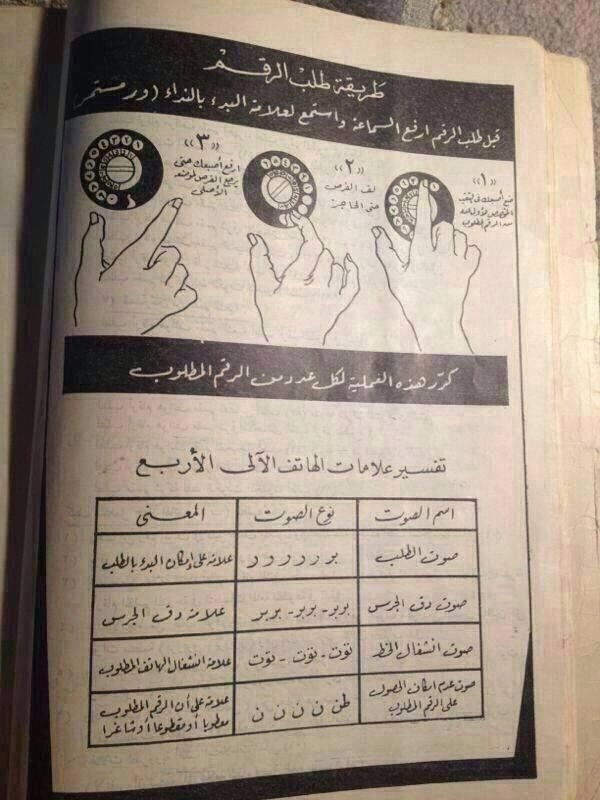 طريقة طلب الرقم
قبل طلب الرقم ارفع السماعة واستمع لعلامة البدء بالنداء (ور مستمر
«١»
ضع أصبعك في الثقب
المخصص لأول عدد
من الرقم المطلوب
«٢»
لف القرص
حتى الحاجز
«٣»
ارفع أصبعك حتى
يرجع القرص لموضعه
الأصلي
كرر هذه العملية لكل عدد من الرقم المطلوب
تفسير علامات الهاتف الآلي الأربع
اسم الصوت نوع الصوت المعنى
صوت الطلب بر ر ر ر ر علامة على إمكان البدء بالطلب
صوت دق الجرس بربر - بربر - بربر علامة دق الجرس
صوت انشغال الخط توت - توت - توت علامة انشغال الهاتف المطلوب
صوت عدم امكان الحصول
على الرقم المطلوب
طن ن ن ن ن
علامة على أن الرقم المطلوب
معطوبا أو مقطوعا أو شاغرا